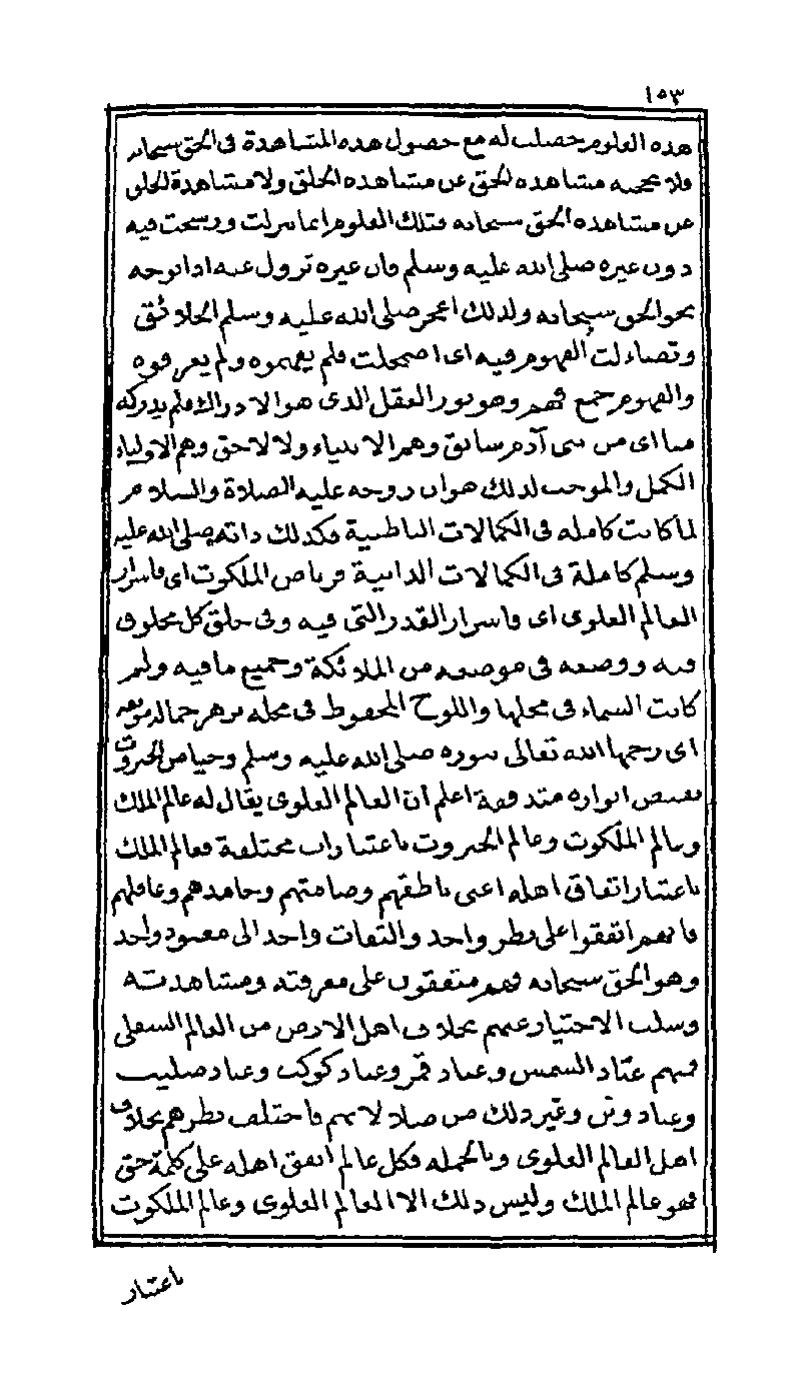 ١٥٣
هذه العلوم حصلت له مع حصول هذه المشاهدة فى الحق سبحانه
فلا تحجبه مشاهدة الحق عن مشاهدة الخلق ولا مشاهدة الخلق
عن مشاهدة الحق سبحانه فتلك العلوم انما نزلت ورسخت فيه
دون غيره صلى الله عليه وسلم فان غيره تزول عنه اذا توجه
نحو الحق سبحانه ولذلك اعجز صلى الله عليه وسلم الخلائق
وتضاءلت الفهوم فيه اى اضمحلت فلم يفهموه ولم يعرفوه
والفهوم جمع فهم وهو نور العقل الذى هو الادراك فلم يدركه
منا اى من بنى آدم سابق وهم الانبياء ولا لاحق وهم الاولياء
الكمل والموجب لذلك هو ان روحه عليه الصلاة والسلام
لما كانت كاملة فى الكمالات الباطنية فكذلك ذاته صلى الله عليه
وسلم كاملة فى الكمالات الذاتية فرياض الملكوت اى فاسرار
العالم العلوى اى فاسرار القدر التى فيه وفى خلق كل مخلوق
فيه ووضعه فى موضعه من الملائكة وجميع ما فيه ولم
كانت السماء فى محلها واللوح المحفوظ فى محله بزهر جماله مونقة
اى رحمها الله تعالى بنوره صلى الله عليه وسلم وحياض الجبروت
بفيض انواره متدفقة اعلم ان العالم العلوى يقال له عالم الملك
وعالم الملكوت وعالم الجبروت باعتبارات مختلفة فعالم الملك
باعتبار اتفاق اهله اعنى ناطقهم وصامتهم وجامدهم وعاقلهم
فانهم اتفقوا على نظر واحد والتفات واحد الى معبود واحد
وهو الحق سبحانه فهم متفقون على معرفته ومشاهدته
وسلب الاختيار عنهم بخلاف اهل الارض من العالم السفلى
فمنهم عبّاد الشمس وعباد قمر وعباد كوكب وعباد صليب
وعباد وثن وغير ذلك من ضلالاتهم فاختلف نظرهم بخلاف
اهل العالم العلوى وبالجملة فكل عالم اتفق اهله على كلمة حق
فهو عالم الملك وليس ذلك الا العالم العلوى وعالم الملكوت
باعتبار